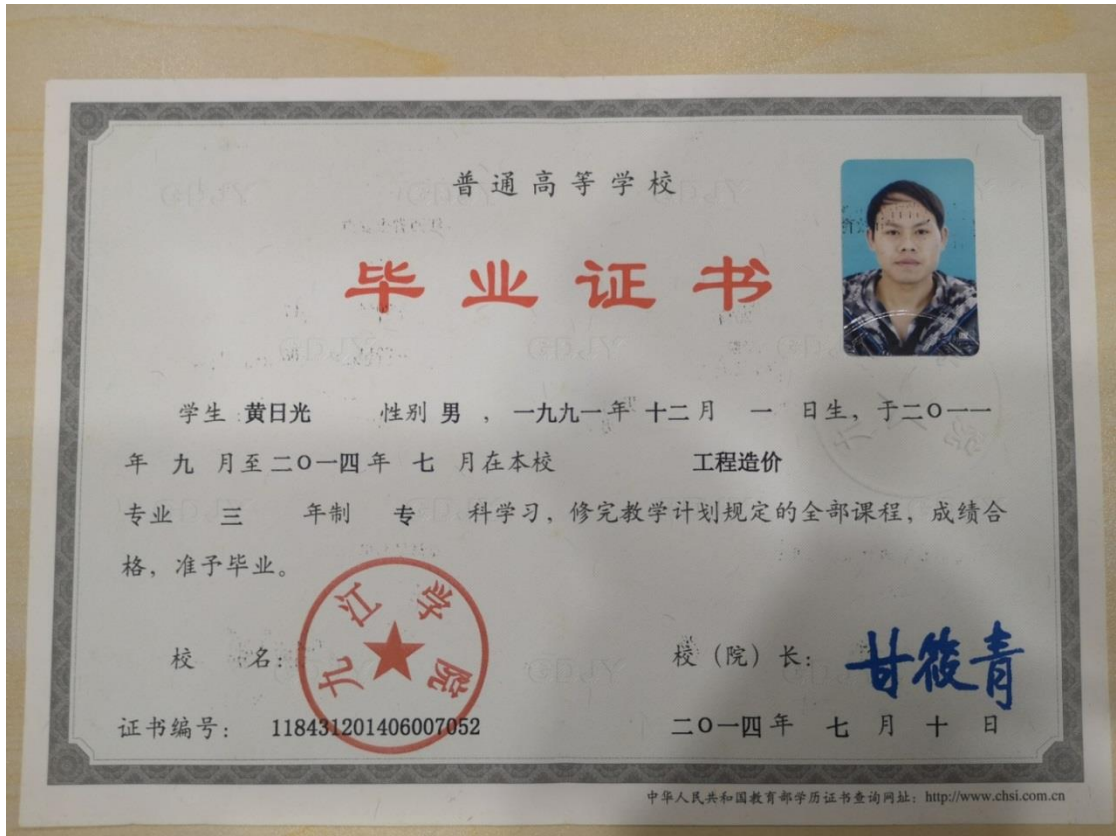 普通高等学校
毕业证书
学生 黄日光 性别 男 ，一九九一年 十二月 一 日生，于二〇一一
年 九 月至二〇一四年 七 月在本校 工程造价
专业 三 年制 专 科学习，修完教学计划规定的全部课程，成绩合
格，准予毕业。
九江学院
校 名：
校（院）长： 甘筱青
证书编号： 118431201406007052
二〇一四年 七 月 十 日
中华人民共和国教育部学历证书查询网址：http://www.chsi.com.cn